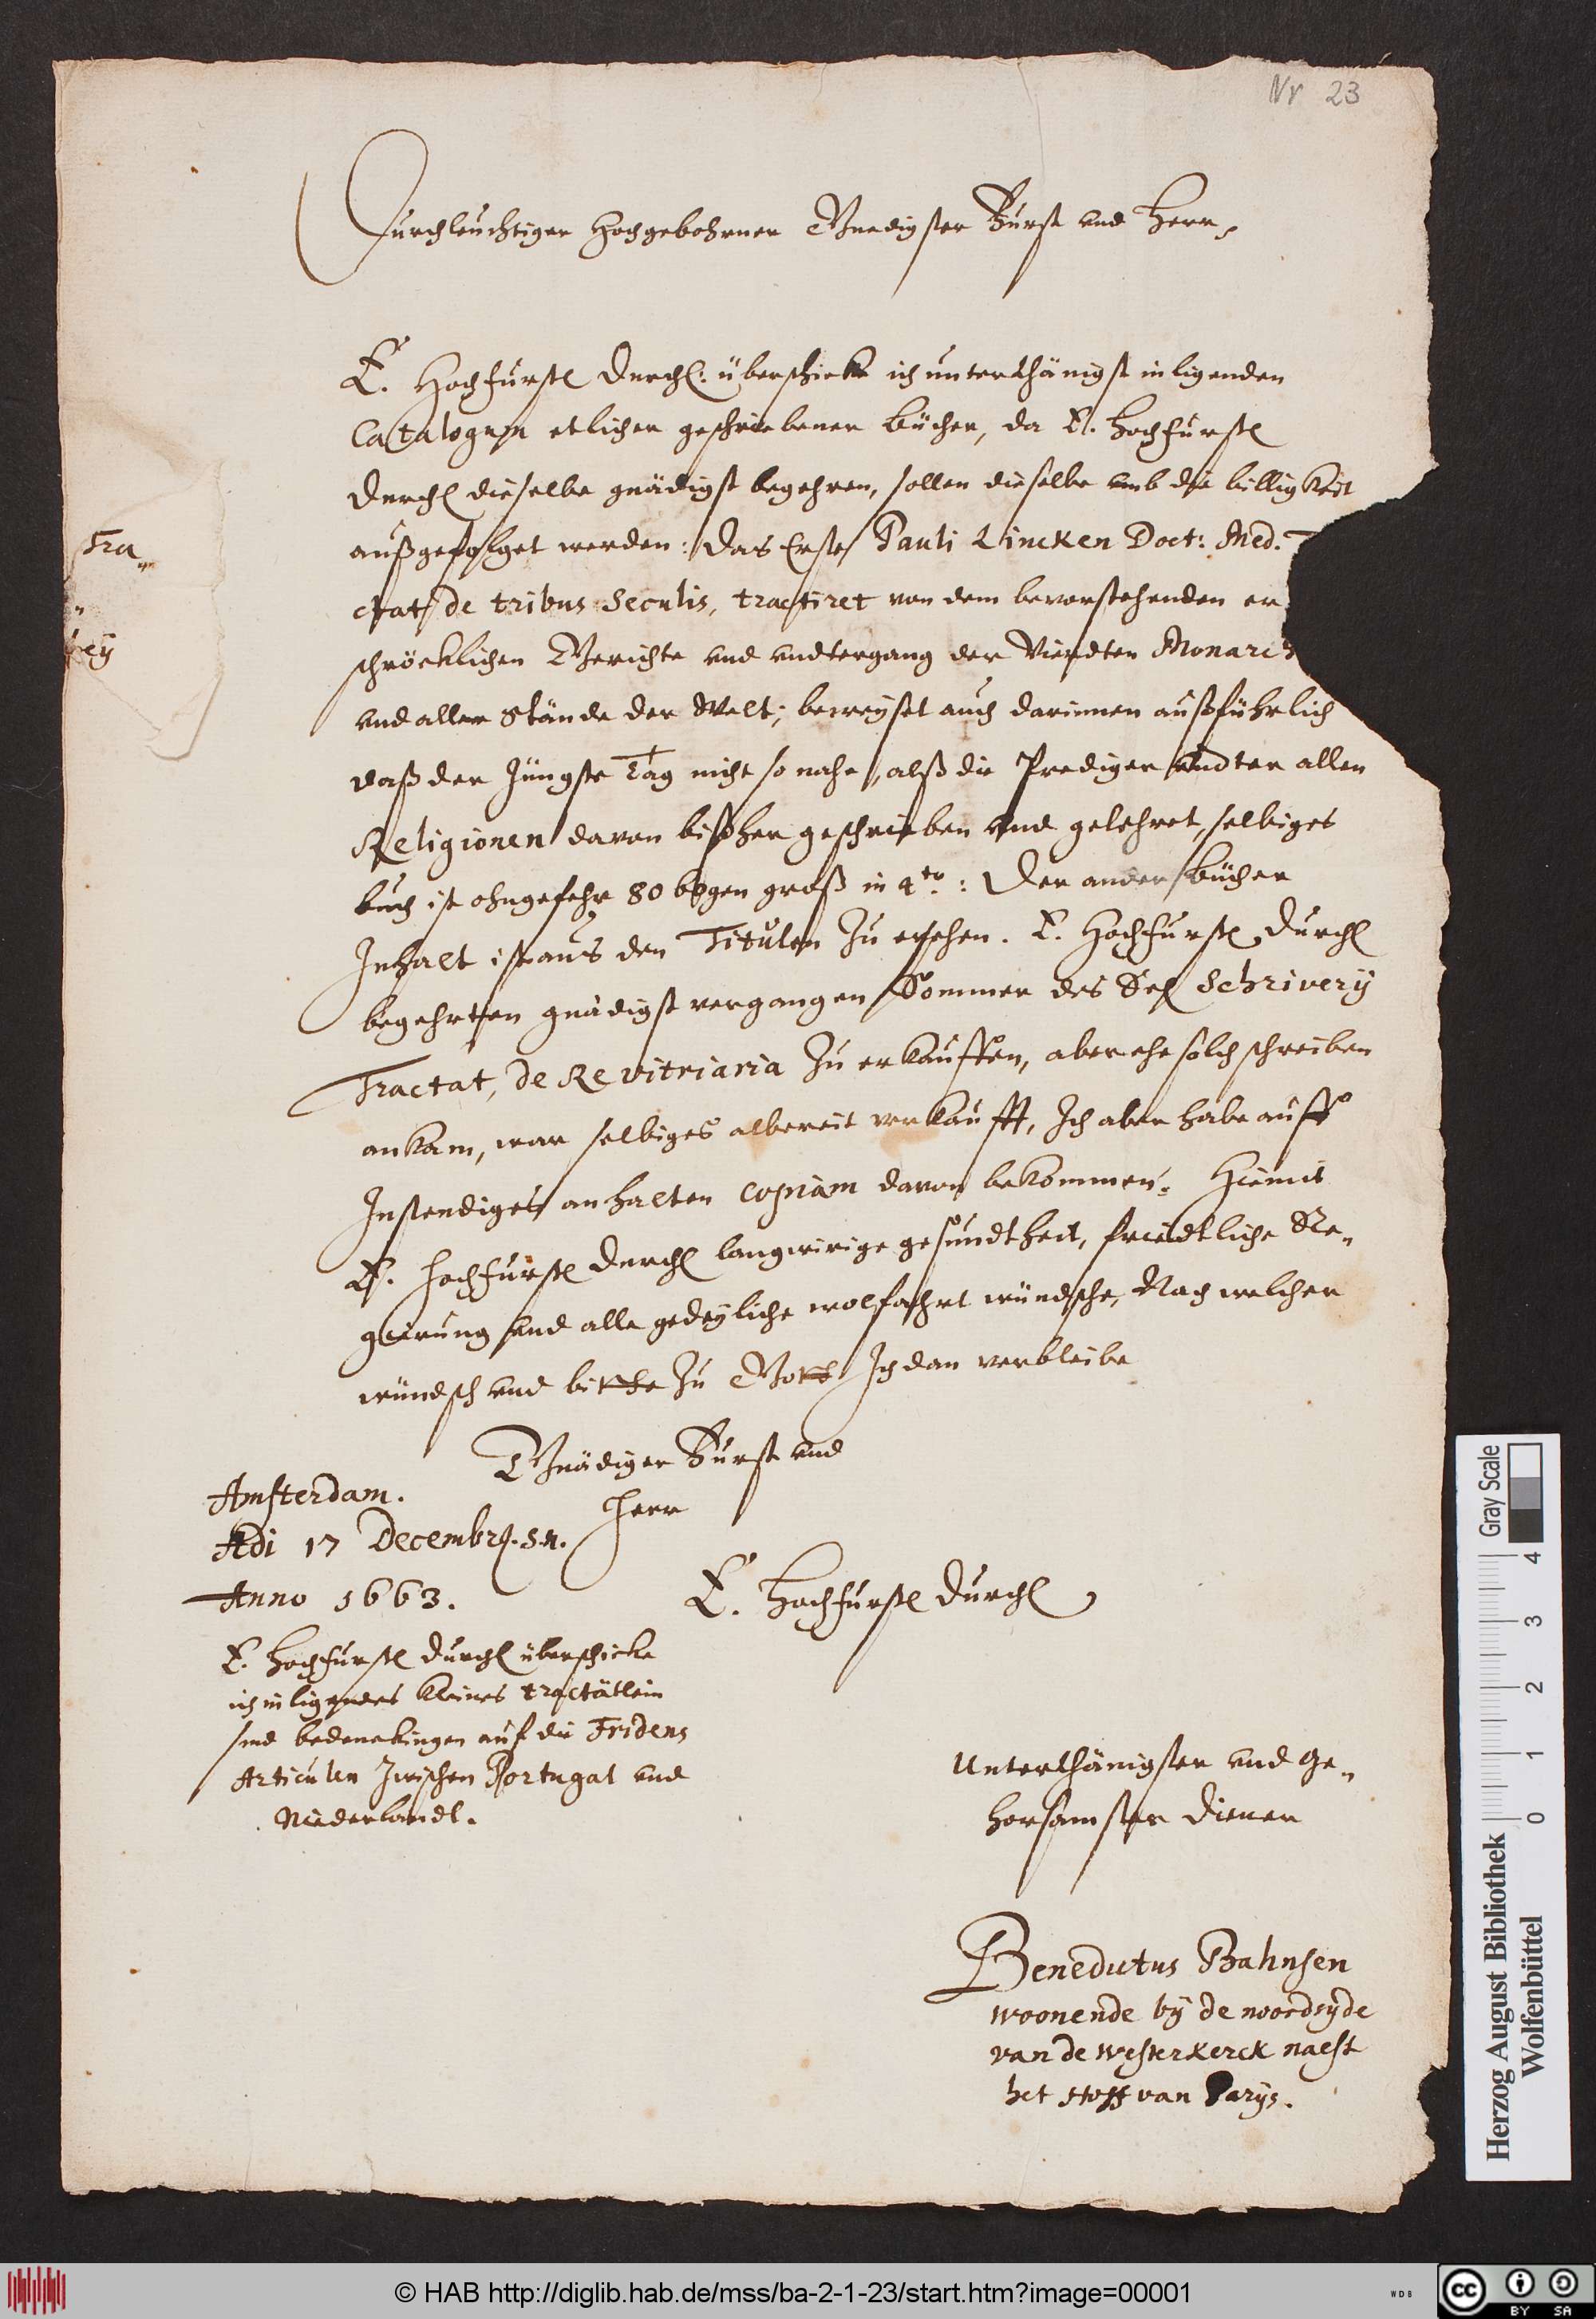 Nr 23
Durchleuchtiger Hochgebohrner Gnedigster Fürst und Herr,
E. Hochfürstl Durchl: überschicke ich unterthänigst inligenden
Catalogum etlicher geschriebener bücher, da E. Hochfürstl
Durchl dieselbe gnädigst begehren, sollen dieselbe umb die billigkeit
außgefolget werden: Das Erste Pauli Lincken Doct: Med.
Tra„
ctat de tribus Seculis, tractiret von dem bevorstehenden er
„
schröcklichen Gerichte und undtergang der Vierdten Monarch
ey
und aller Stände der Welt; beweyset auch darinnen außführlich
daß der Jüngste Tag nicht so nahe, alß die Prediger undter allen
Religionen davon bißher geschrieben und gelehret, selbiges
buch ist ohngefehr 80 bogen groß in 4to: Der ander bücher
Inhalt ist aus den Titulen zu ersehen. E. Hochfürstl Durchl
begehrten gnädigst vergangen Sommer des Sel Schrivery
Tractat, de Re vitriaria zu erkauffen, aber ehe solch schreiben
ankam, war selbiges albereit verkaufft, Ich aber habe auff
Instendiges anhalten copiam davon bekommen. Hiemit
E. Hochfürstl Durchl langwirige gesundtheit, friedtliche Re„
gierung und alle gedeyliche wolfahrt wündsche, Nach welcher
wündsch und bitte zu Gott Ich dan verbleibe
Gnädiger Fürst und
Herr
Amsterdam.
Adi 17 Decembr. s.n.
Anno 1663.
E. Hochfürstl Durchl
E. Hochfürstl Durchl überschicke
ich inligendes kleines tractätlein
sind bedenckingen auf die Fridens
Articulen zwischen Portugal und
Niederlandl.
Unterthänigster und ge„
horsamster Diener
Benedictus Bahnsen
woonende by de noordsyde
van de westerkerck naest
het stoff van Parys.
Gray Scale
0 1 2 3 4
Herzog August Bibliothek
Wolfenbüttel
© HAB http://diglib.hab.de/mss/ba-2-1-23/start.htm?image=00001
WDB
cc BY SA